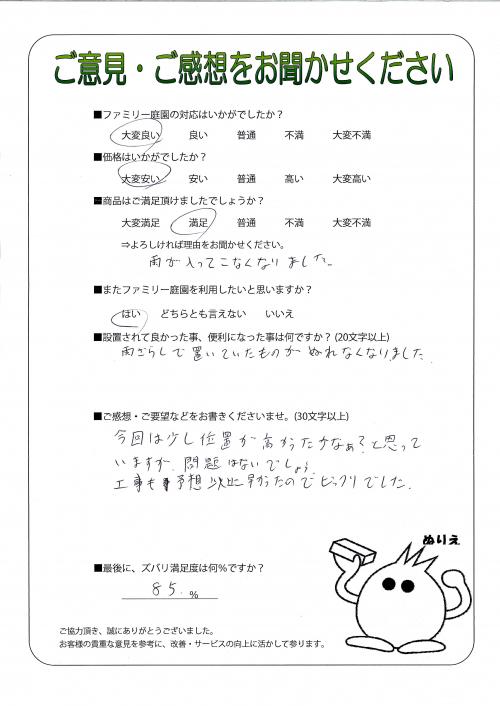 ご意見・ご感想をお聞かせください
■ファミリー庭園の対応はいかがでしたか？
大変良い 良い 普通 不満 大変不満
■価格はいかがでしたか？
大変安い 安い 普通 高い 大変高い
■商品はご満足頂けましたでしょうか？
大変満足 満足 普通 不満 大変不満
⇒よろしければ理由をお聞かせください。
雨が入ってこなくなりました。
■またファミリー庭園を利用したいと思いますか？
はい どちらとも言えない いいえ
■設置されて良かった事、便利になった事は何ですか？(20文字以上)
雨ざらしで置いていたものがぬれなくなりました
■ご感想・ご要望などをお書きくださいませ。(30文字以上)
今回は少し位置が高かったかなぁ？と思って
いますが、問題はないでしょう
工事も予想以上に早かったのでビックリでした。
ぬりえ
■最後に、ズバリ満足度は何％ですか？
85.％
ご協力頂き、誠にありがとうございました。
お客様の貴重な意見を参考に、改善・サービスの向上に活かして参ります。